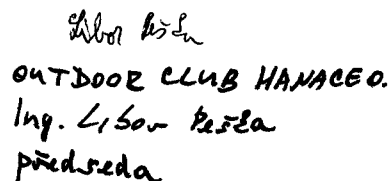 Libor Pešta
OUTDOOR CLUB HANACEO.
Ing. Libor Pešta
předseda